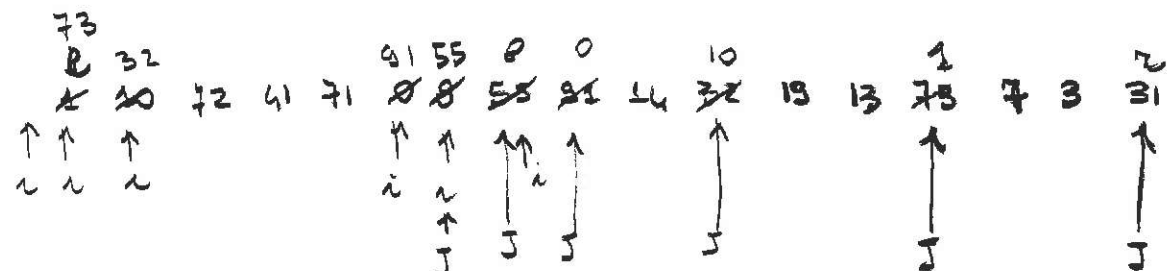 73
32 91 55 8 0 10 1 2
1 10 72 41 71 0 8 55 91 14 32 19 13 73 7 3 31
i i i i i i
J J J J J J